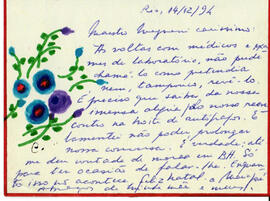 Rio, 14/12/94
Mauro Meyneri caríssimo:
Às voltas com médicos e exa-
mes de laboratório, não pude
chamá-lo como pretendia
nem, tampouco, revê-lo.
É preciso que saiba da nossa
imensa alegria do nosso reen-
contro na noite d'autógrafos. E
lamentei não poder prolongar
nossa conversa. É verdade: até
me deu vontade de morar em BH. Só
para ter ocasião de falar-lhe. Enquan
to isso não acontece, feliz Natal e